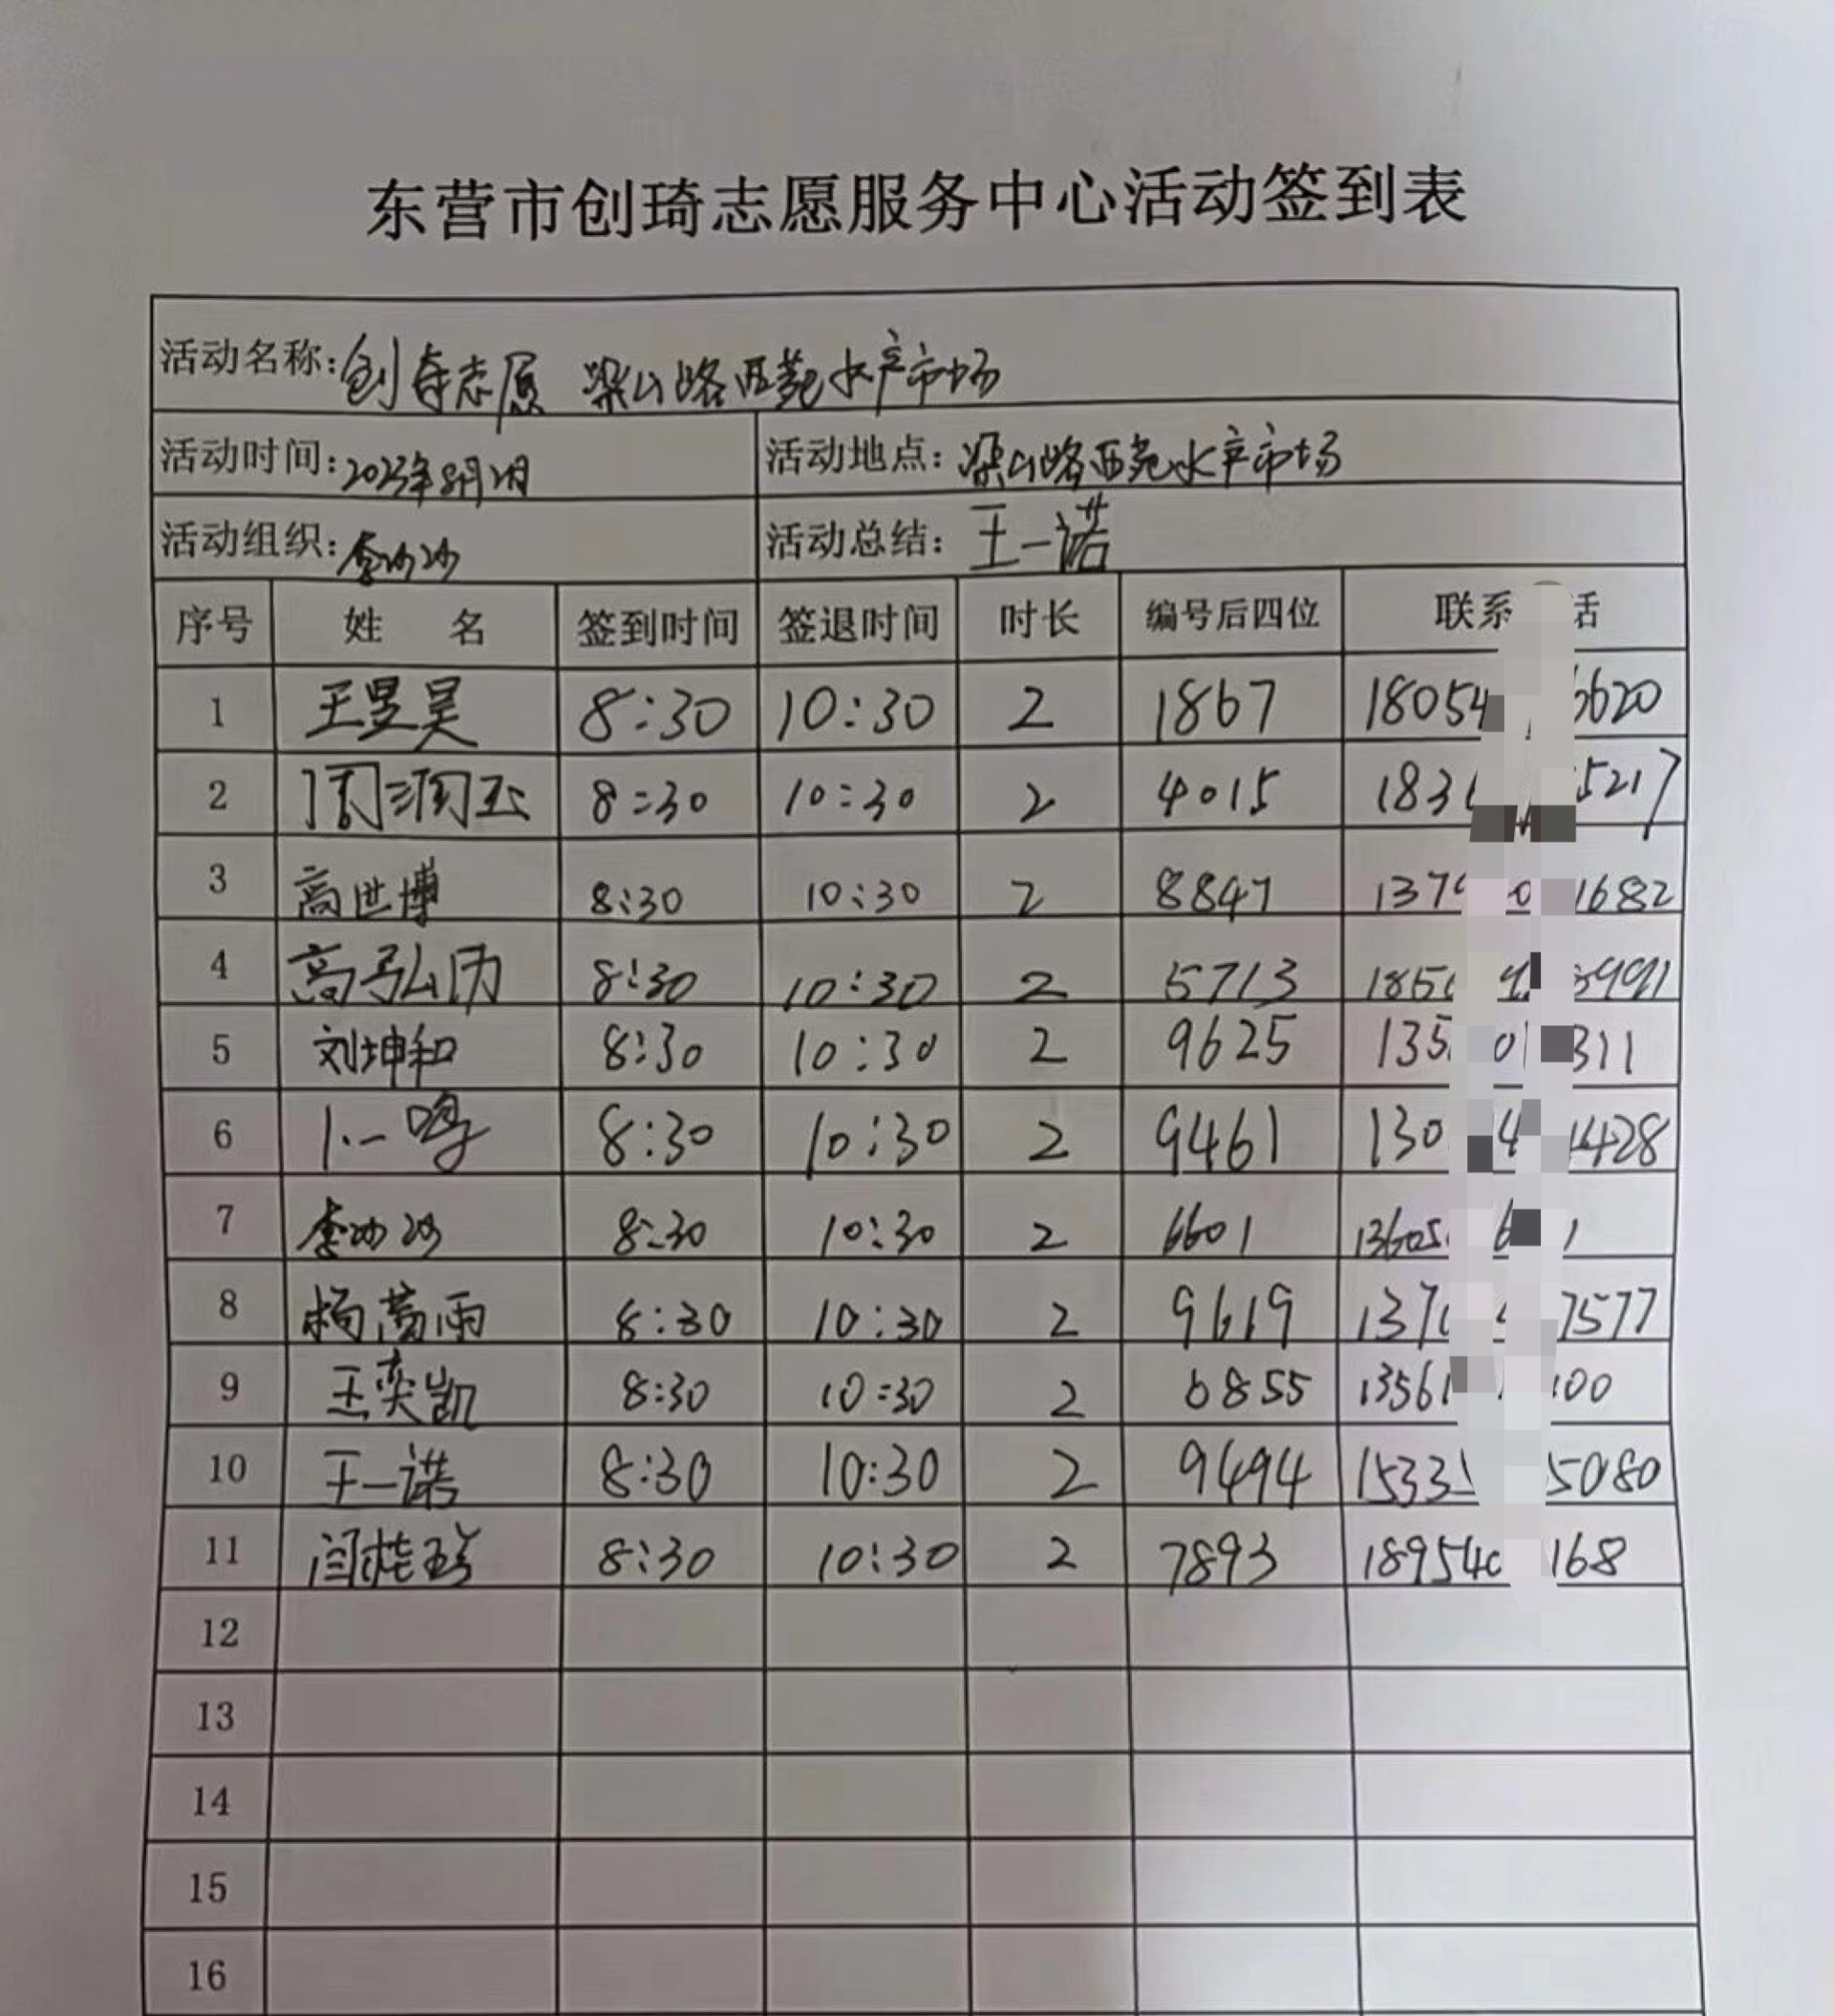 东营市创琦志愿服务中心活动签到表
活动名称: 创奇志愿 梁山路西苑水产市场
活动时间: 2023年8月2日 活动地点: 梁山路西苑水产市场
活动组织: 李沙沙 活动总结: 王一诺
序号 姓 名 签到时间 签退时间 时长 编号后四位 联系 话
1 王昱昊 8:30 10:30 2 1867 18054 6620
2 周润玉 8:30 10:30 2 4015 183 5217
3 高世博 8:30 10:30 2 8847 137 0 1682
4 高弘历 8:30 10:30 2 5713 185 991
5 刘坤和 8:30 10:30 2 9625 135 01 311
6 卜一鸣 8:30 10:30 2 9461 130 4 428
7 李沙沙 8:30 10:30 2 6601 13605 6 1
8 杨蕾雨 8:30 10:30 2 9619 137 7577
9 王奕凯 8:30 10:30 2 6855 13561 100
10 王一诺 8:30 10:30 2 9494 1533 5080
11 闫桂珍 8:30 10:30 2 7893 18954 168
12
13
14
15
16